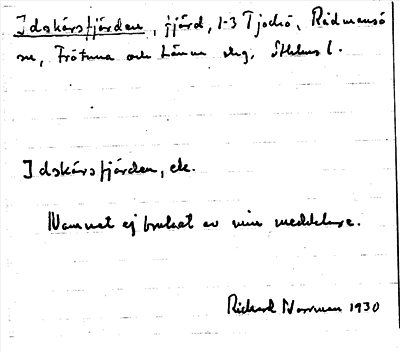 Idskärsfjärden, fjärd, 1-3 Tjockö, Rådmansö
sn, Frötuna och Länna skg, Sthlms l.
Idskärsfjärden, ek.
Namnet ej brukat av min meddelare.
Rickard Norrman 1930